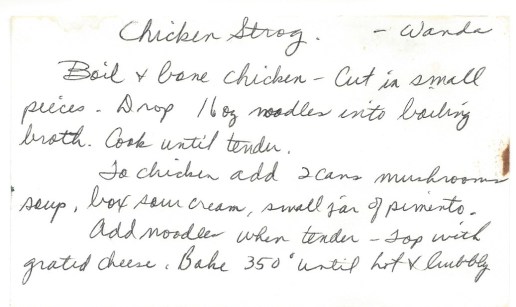 Chicken Strog. - Wanda
Boil & bone chicken - Cut in small
pieces. Drop 16 oz noodles into boiling
broth. Cook until tender.
To chicken add 2 cans mushrooms
soup, box sour cream, small jar of pimento.
Add noodles when tender - Top with
grated cheese. Bake 350° until hot & bubbly